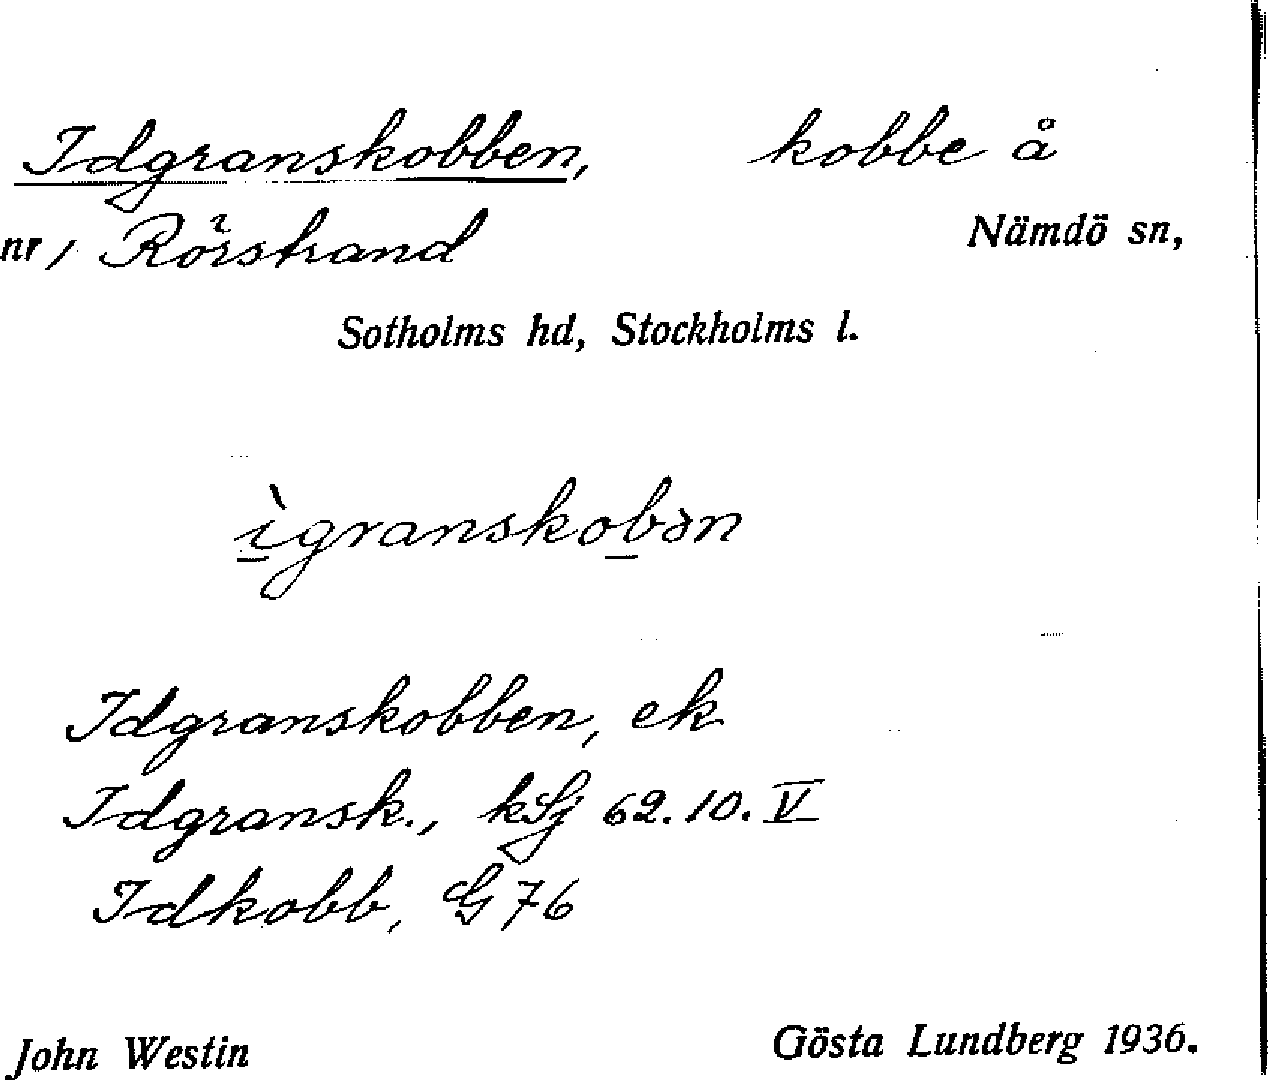 Idgranskobben, kobbe å
nr, Rörstrand Nämdö sn,
Sotholms hd, Stockholms l.
ìgranskobən
Idgranskobben, ek
Idgransk., kSj 62.10.V
Idkobb, G 76
John Westin Gösta Lundberg 1936.